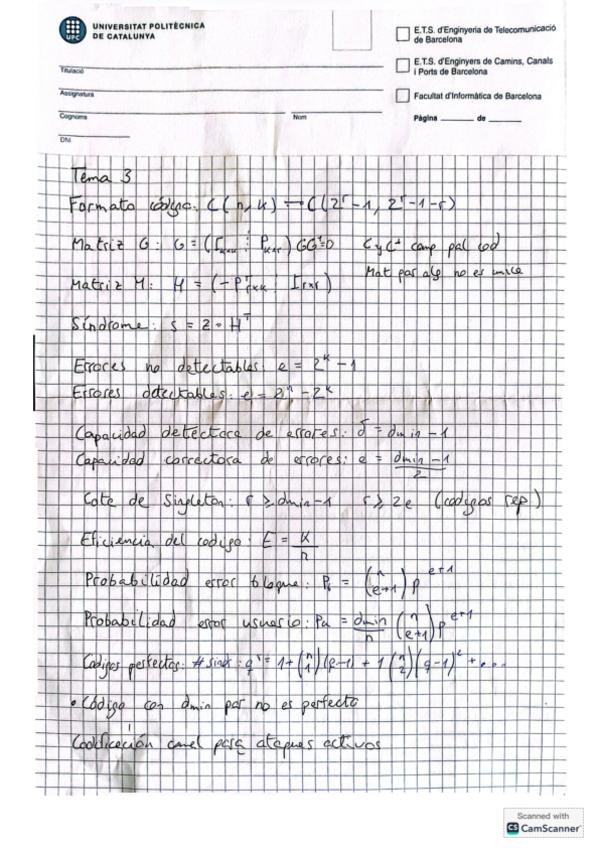 UNIVERSITAT POLITÈCNICA
DE CATALUNYA
UPC
E.T.S. d'Enginyeria de Telecomunicació
de Barcelona
E.T.S. d'Enginyers de Camins, Canals
i Ports de Barcelona
Facultat d'Informàtica de Barcelona
Titulació
Assignatura
Cognoms Nom Pàgina de
DNI
Tema 3
Formato código: C(n,k) — C(2^r-1, 2^r-1-r)
Matriz G: G = (I_kxk ⋮ P_kxr) GG^⊥=0 C y C^⊥ comp pal cod
Mat par no es unica
Matriz H: H = (-P^T_rxk ⋮ I_rxr)
Síndrome: s = z · H^T
Errores no detectables: e = 2^k - 1
Errores detectables: e = 2^n - 2^k
Capacidad detectora de errores: δ = dmin - 1
Capacidad correctora de errores: e = (dmin - 1)/2
Cote de Singleton: r ≥ dmin-1 r ≥ 2e (codigos rep)
Eficiencia del codigo: E = k/n
Probabilidad error bloque: P_b = (n e+1) p^e+1
Probabilidad error usuario: Pu = dmin/n (n e+1) p^e+1
Codigos perfectos: # sind: q^r = 1+(n 1)(q-1) + 1(n 2)(q-1)^2 + ...
• Código con dmin par no es perfecto
Codificación canel para ataques activos
Scanned with
CS CamScanner